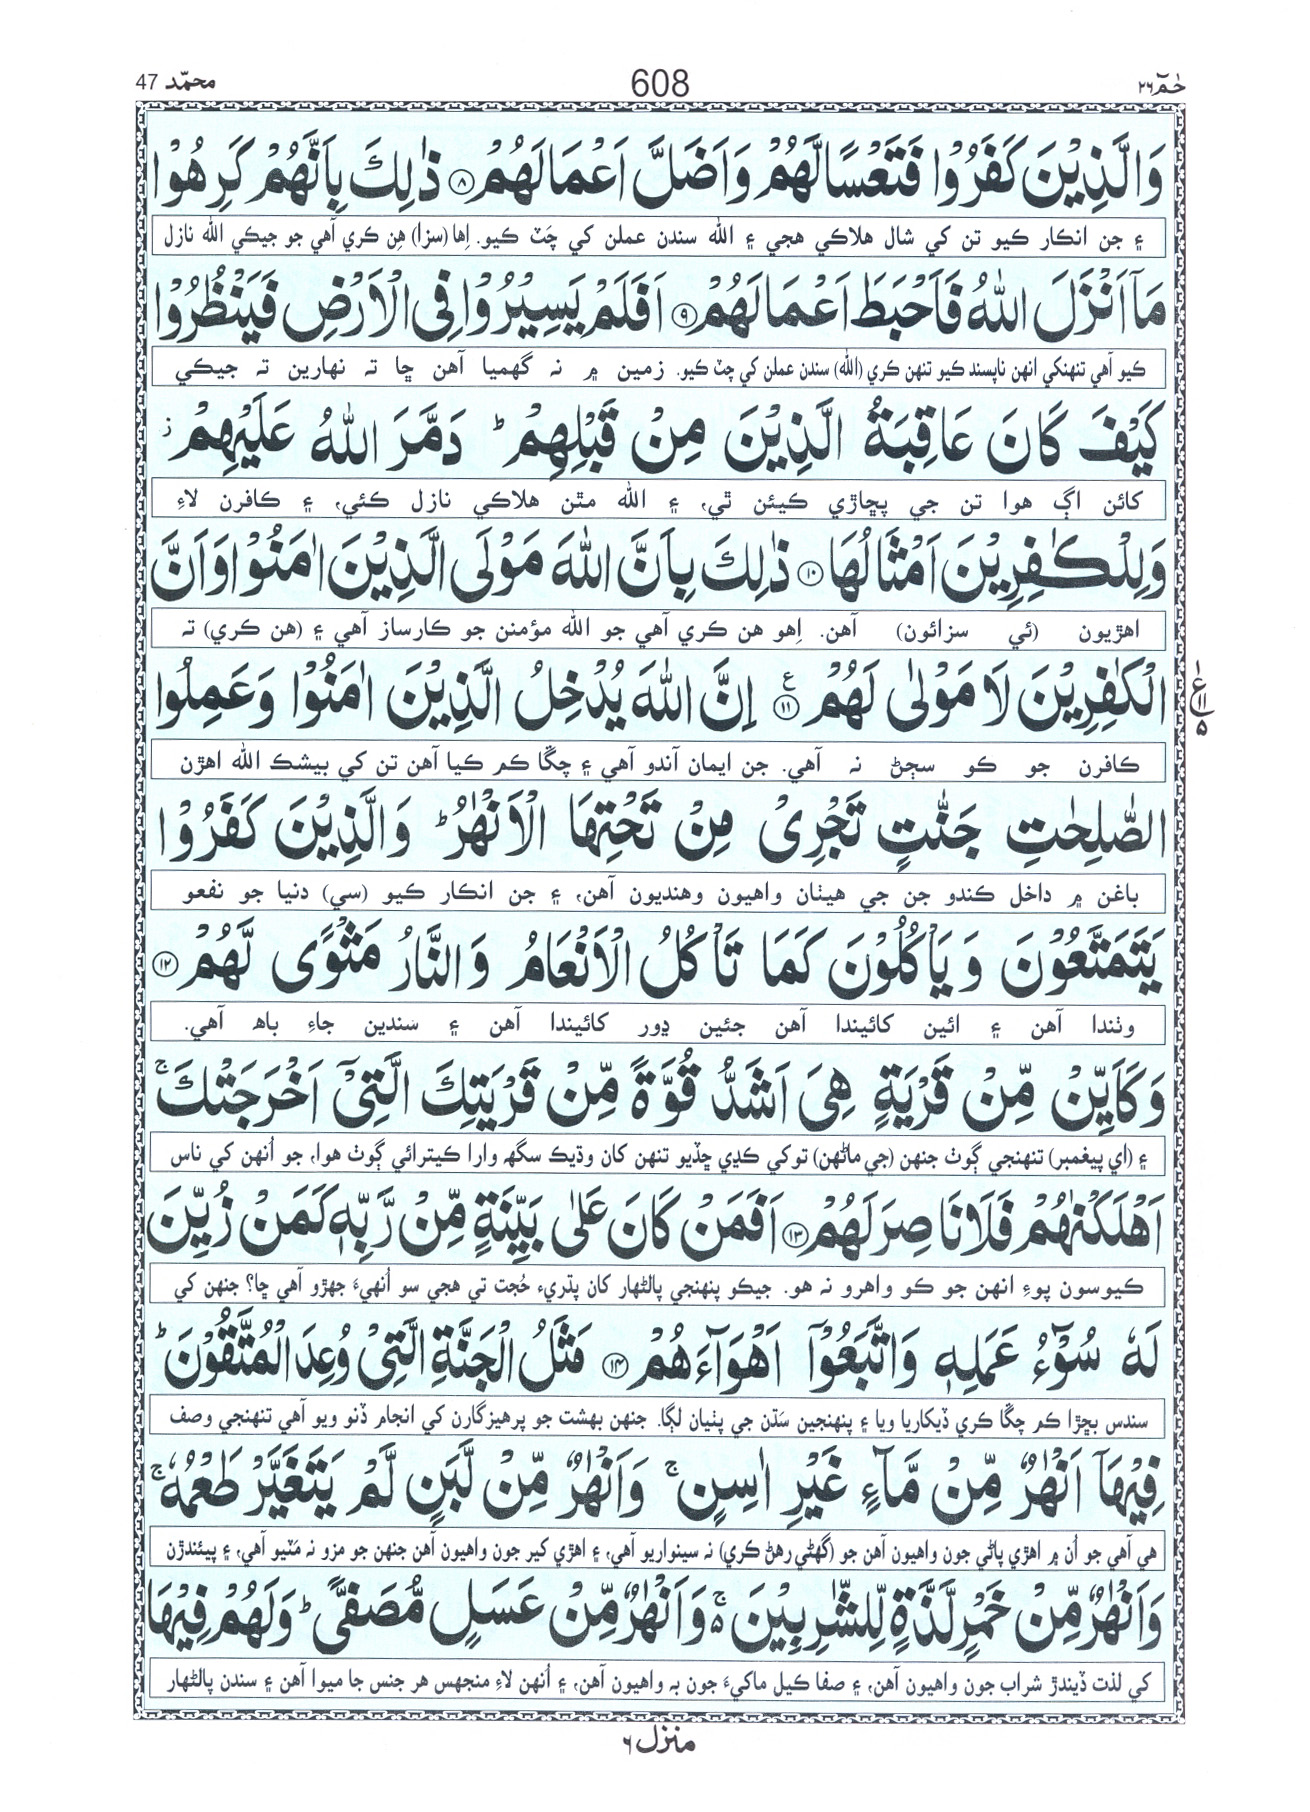 حٰمٓ ٢٦
608
محمّد 47
وَالَّذِيْنَ كَفَرُوْا فَتَعْسًا لَّهُمْ وَاَضَلَّ اَعْمَالَهُمْ ﴿٨﴾ ذٰلِكَ بِاَنَّهُمْ كَرِهُوْا
۽ جن انڪار ڪيو تن کي شال هلاڪي هجي ۽ الله سندن عملن کي چَٽ ڪيو. اِها (سزا) هِن ڪري آهي جو جيڪي الله نازل
مَاۤ اَنْزَلَ اللّٰهُ فَاَحْبَطَ اَعْمَالَهُمْ ﴿٩﴾ اَفَلَمْ يَسِيْرُوْا فِى الْاَرْضِ فَيَنْظُرُوْا
ڪيو آهي تنهنکي انهن ناپسند ڪيو تنهن ڪري (الله) سندن عملن کي چٽ ڪيو. زمين ۾ نہ گهميا آهن ڇا تہ نهارين تہ جيڪي
كَيْفَ كَانَ عَاقِبَةُ الَّذِيْنَ مِنْ قَبْلِهِمْ ؕ دَمَّرَ اللّٰهُ عَلَيْهِمْ ز
کائن اڳ هوا تن جي پڇاڙي ڪيئن ٿي، ۽ الله مٿن هلاڪي نازل ڪئي، ۽ ڪافرن لاءِ
وَلِلْكٰفِرِيْنَ اَمْثَالُهَا ﴿١٠﴾ ذٰلِكَ بِاَنَّ اللّٰهَ مَوْلَى الَّذِيْنَ اٰمَنُوْا وَاَنَّ
اهڙيون (ئي سزائون) آهن. اِهو هن ڪري آهي جو الله مؤمنن جو ڪارساز آهي ۽ (هن ڪري) تہ
الْكٰفِرِيْنَ لَا مَوْلٰى لَهُمْ ﴿١١﴾ ع اِنَّ اللّٰهَ يُدْخِلُ الَّذِيْنَ اٰمَنُوْا وَعَمِلُوا
١ ع ١١ ٥
ڪافرن جو ڪو سڄڻ نہ آهي. جن ايمان آندو آهي ۽ چڱا ڪم ڪيا آهن تن کي بيشڪ الله اهڙن
الصّٰلِحٰتِ جَنّٰتٍ تَجْرِىْ مِنْ تَحْتِهَا الْاَنْهٰرُ ؕ وَالَّذِيْنَ كَفَرُوْا
باغن ۾ داخل ڪندو جن جي هيٺان واهيون وهنديون آهن، ۽ جن انڪار ڪيو (سي) دنيا جو نفعو
يَتَمَتَّعُوْنَ وَيَاْكُلُوْنَ كَمَا تَاْكُلُ الْاَنْعَامُ وَالنَّارُ مَثْوًى لَّهُمْ ﴿١٢﴾
وٺندا آهن ۽ ائين کائيندا آهن جئين ڍور کائيندا آهن ۽ سَندين جاءِ باھ آهي.
وَكَاَيِّنْ مِّنْ قَرْيَةٍ هِىَ اَشَدُّ قُوَّةً مِّنْ قَرْيَتِكَ الَّتِىْۤ اَخْرَجَتْكَ ۚ
۽ (اي پيغمبر) تنهنجي ڳوٺ جنهن (جي ماڻهن) توکي ڪڍي ڇڏيو تنهن کان وڌيڪ سگهہ وارا ڪيترائي ڳوٺ هوا، جو اُنهن کي ناس
اَهْلَكْنٰهُمْ فَلَا نَاصِرَ لَهُمْ ﴿١٣﴾ اَفَمَنْ كَانَ عَلٰى بَيِّنَةٍ مِّنْ رَّبِّهٖ كَمَنْ زُيِّنَ
ڪيوسون پوءِ انهن جو ڪو واهرو نہ هو. جيڪو پنهنجي پالڻهار کان پڌريءَ حُجت تي هجي سو اُنهيءَ جهڙو آهي ڇا؟ جنهن کي
لَهٗ سُوْۤءُ عَمَلِهٖ وَاتَّبَعُوْۤا اَهْوَآءَهُمْ ﴿١٤﴾ مَثَلُ الْجَنَّةِ الَّتِىْ وُعِدَ الْمُتَّقُوْنَ ؕ
سندس بڇڙا ڪم چڱا ڪري ڏيکاريا ويا ۽ پنهنجين سَڌن جي پٺيان لڳا. جنهن بهشت جو پرهيزگارن کي انجام ڏنو ويو آهي تنهنجي وصف
فِيْهَاۤ اَنْهٰرٌ مِّنْ مَّآءٍ غَيْرِ اٰسِنٍ ۚ وَاَنْهٰرٌ مِّنْ لَّبَنٍ لَّمْ يَتَغَيَّرْ طَعْمُهٗ ۚ
هي آهي جو اُن ۾ اهڙي پاڻي جون واهيون آهن جو (گهڻي رهڻ ڪري) نہ سينواريو آهي، ۽ اهڙي کير جون واهيون آهن جنهن جو مزو نہ مَٽيو آهي، ۽ پيئندڙن
وَاَنْهٰرٌ مِّنْ خَمْرٍ لَّذَّةٍ لِّلشّٰرِبِيْنَ ۚ۬ وَاَنْهٰرٌ مِّنْ عَسَلٍ مُّصَفًّى ؕ وَلَهُمْ فِيْهَا
کي لذت ڏيندڙ شراب جون واهيون آهن، ۽ صفا ڪيل ماکيءَ جون بہ واهيون آهن، ۽ اُنهن لاءِ منجهس هر جنس جا ميوا آهن ۽ سندن پالڻهار
منزل ٦